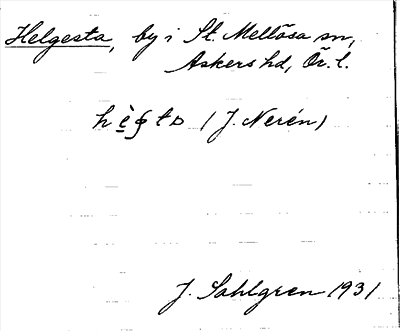 Helgesta, by i St. Mellösa sn,
Askers hd, Ör. l.
(J. Nerén)
J. Sahlgren 1931